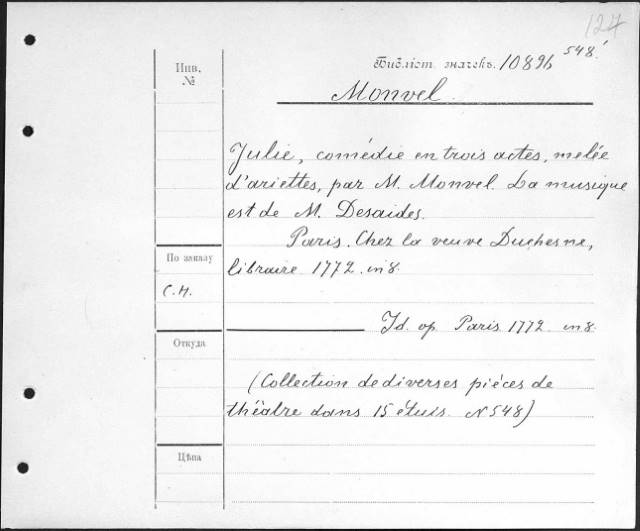 124
548.
Инв.
№
Библіот. значекъ. 10896
Monvel.
Julie, comédie en trois actes, melée
d'ariettes, par M. Monvel. La musique
est de M. Desaides.
Paris. Chez la veuve Duchesne,
По заказу
libraire 1772. in 8.
С.Н.
Id. op. Paris 1772. in 8.
Откуда
(Collection de diverses pièces de
théâtre dans 15 étuis. N 548)
Цѣна